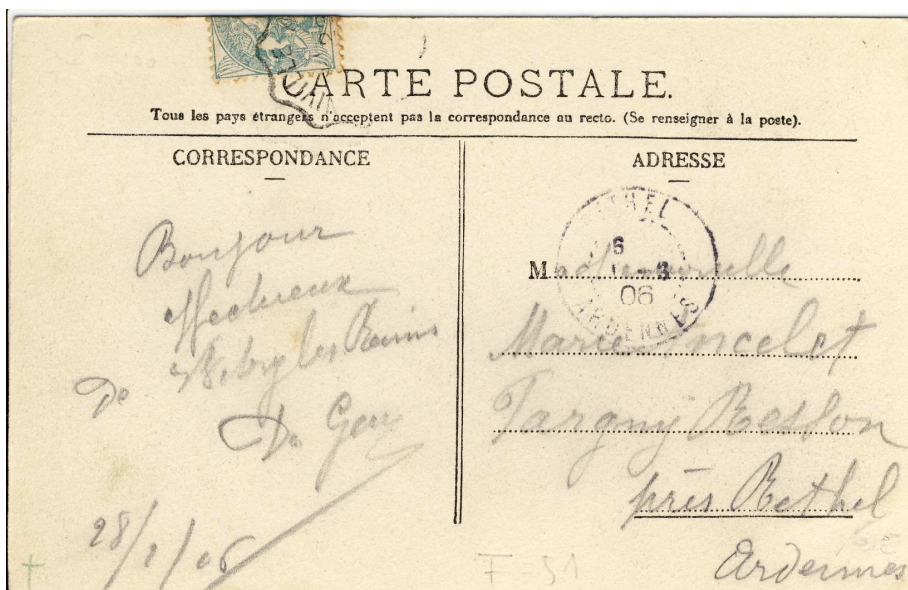 CARTE POSTALE.
Tous les pays étrangers n'acceptent pas la correspondance au recto. (Se renseigner à la poste).
CORRESPONDANCE
Bonjour
Affectueux
De les Bains
28/ /06
ADRESSE
RETHEL
6
06
ARDENNES
Mademoiselle
Marie Ancelet
Targny Resson
près Rethel
Ardennes
F-51